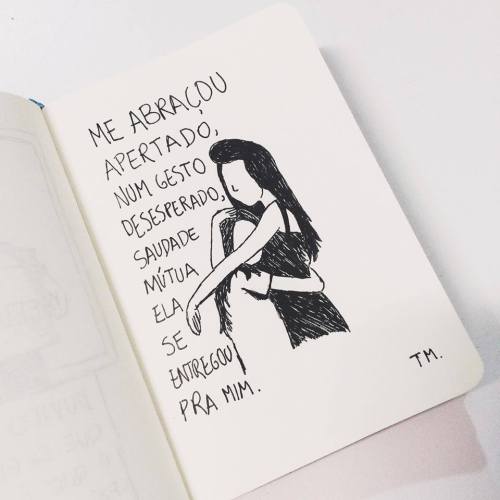 ME ABRAÇOU
APERTADO,
NUM GESTO
DESESPERADO,
SAUDADE
MÚTUA
ELA
SE
ENTREGOU
PRA MIM.
TM.